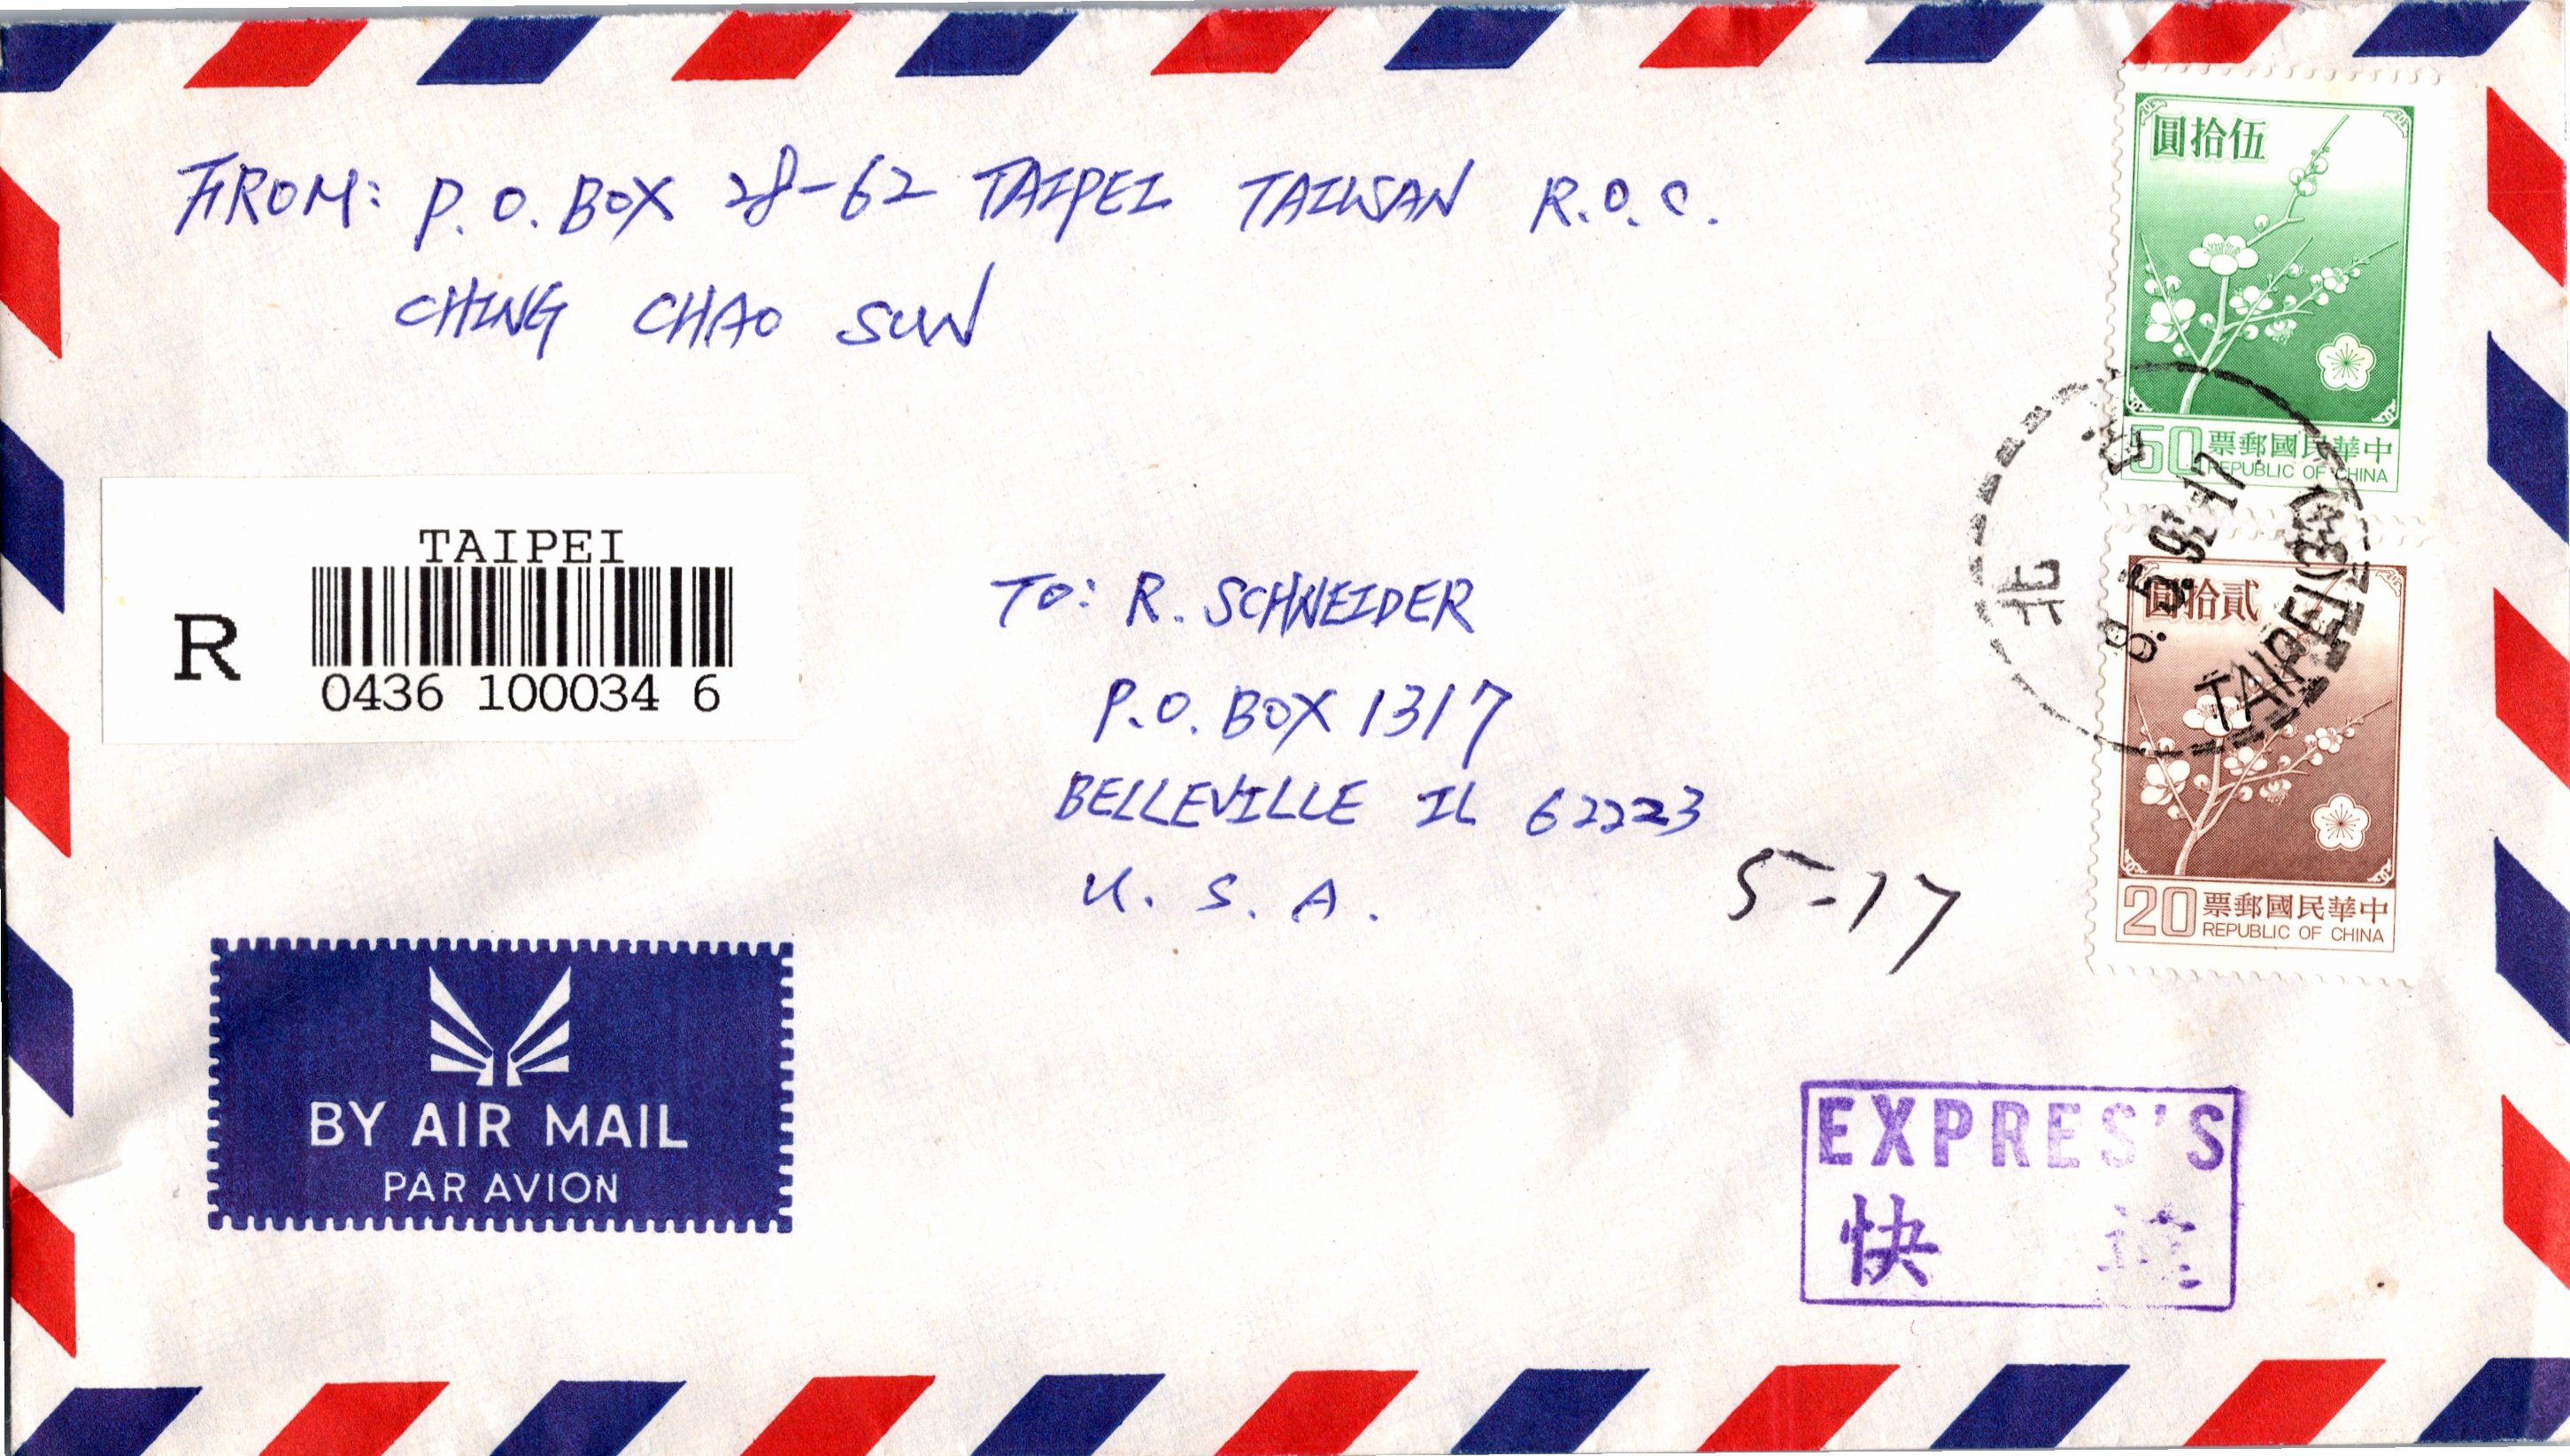 FROM: P.O. BOX 28-62 TAIPEI TAIWAN R.O.C.
CHING CHAO SUN
圓拾伍
50 票郵國民華中
REPUBLIC OF CHINA
TAIPEI
R
0436 100034 6
TO: R. SCHNEIDER
P.O. BOX 1317
BELLEVILLE IL 62223
U. S. A.
5-17
北
TAIPEI
圓拾貳
20 票郵國民華中
REPUBLIC OF CHINA
BY AIR MAIL
PAR AVION
EXPRES'S
快